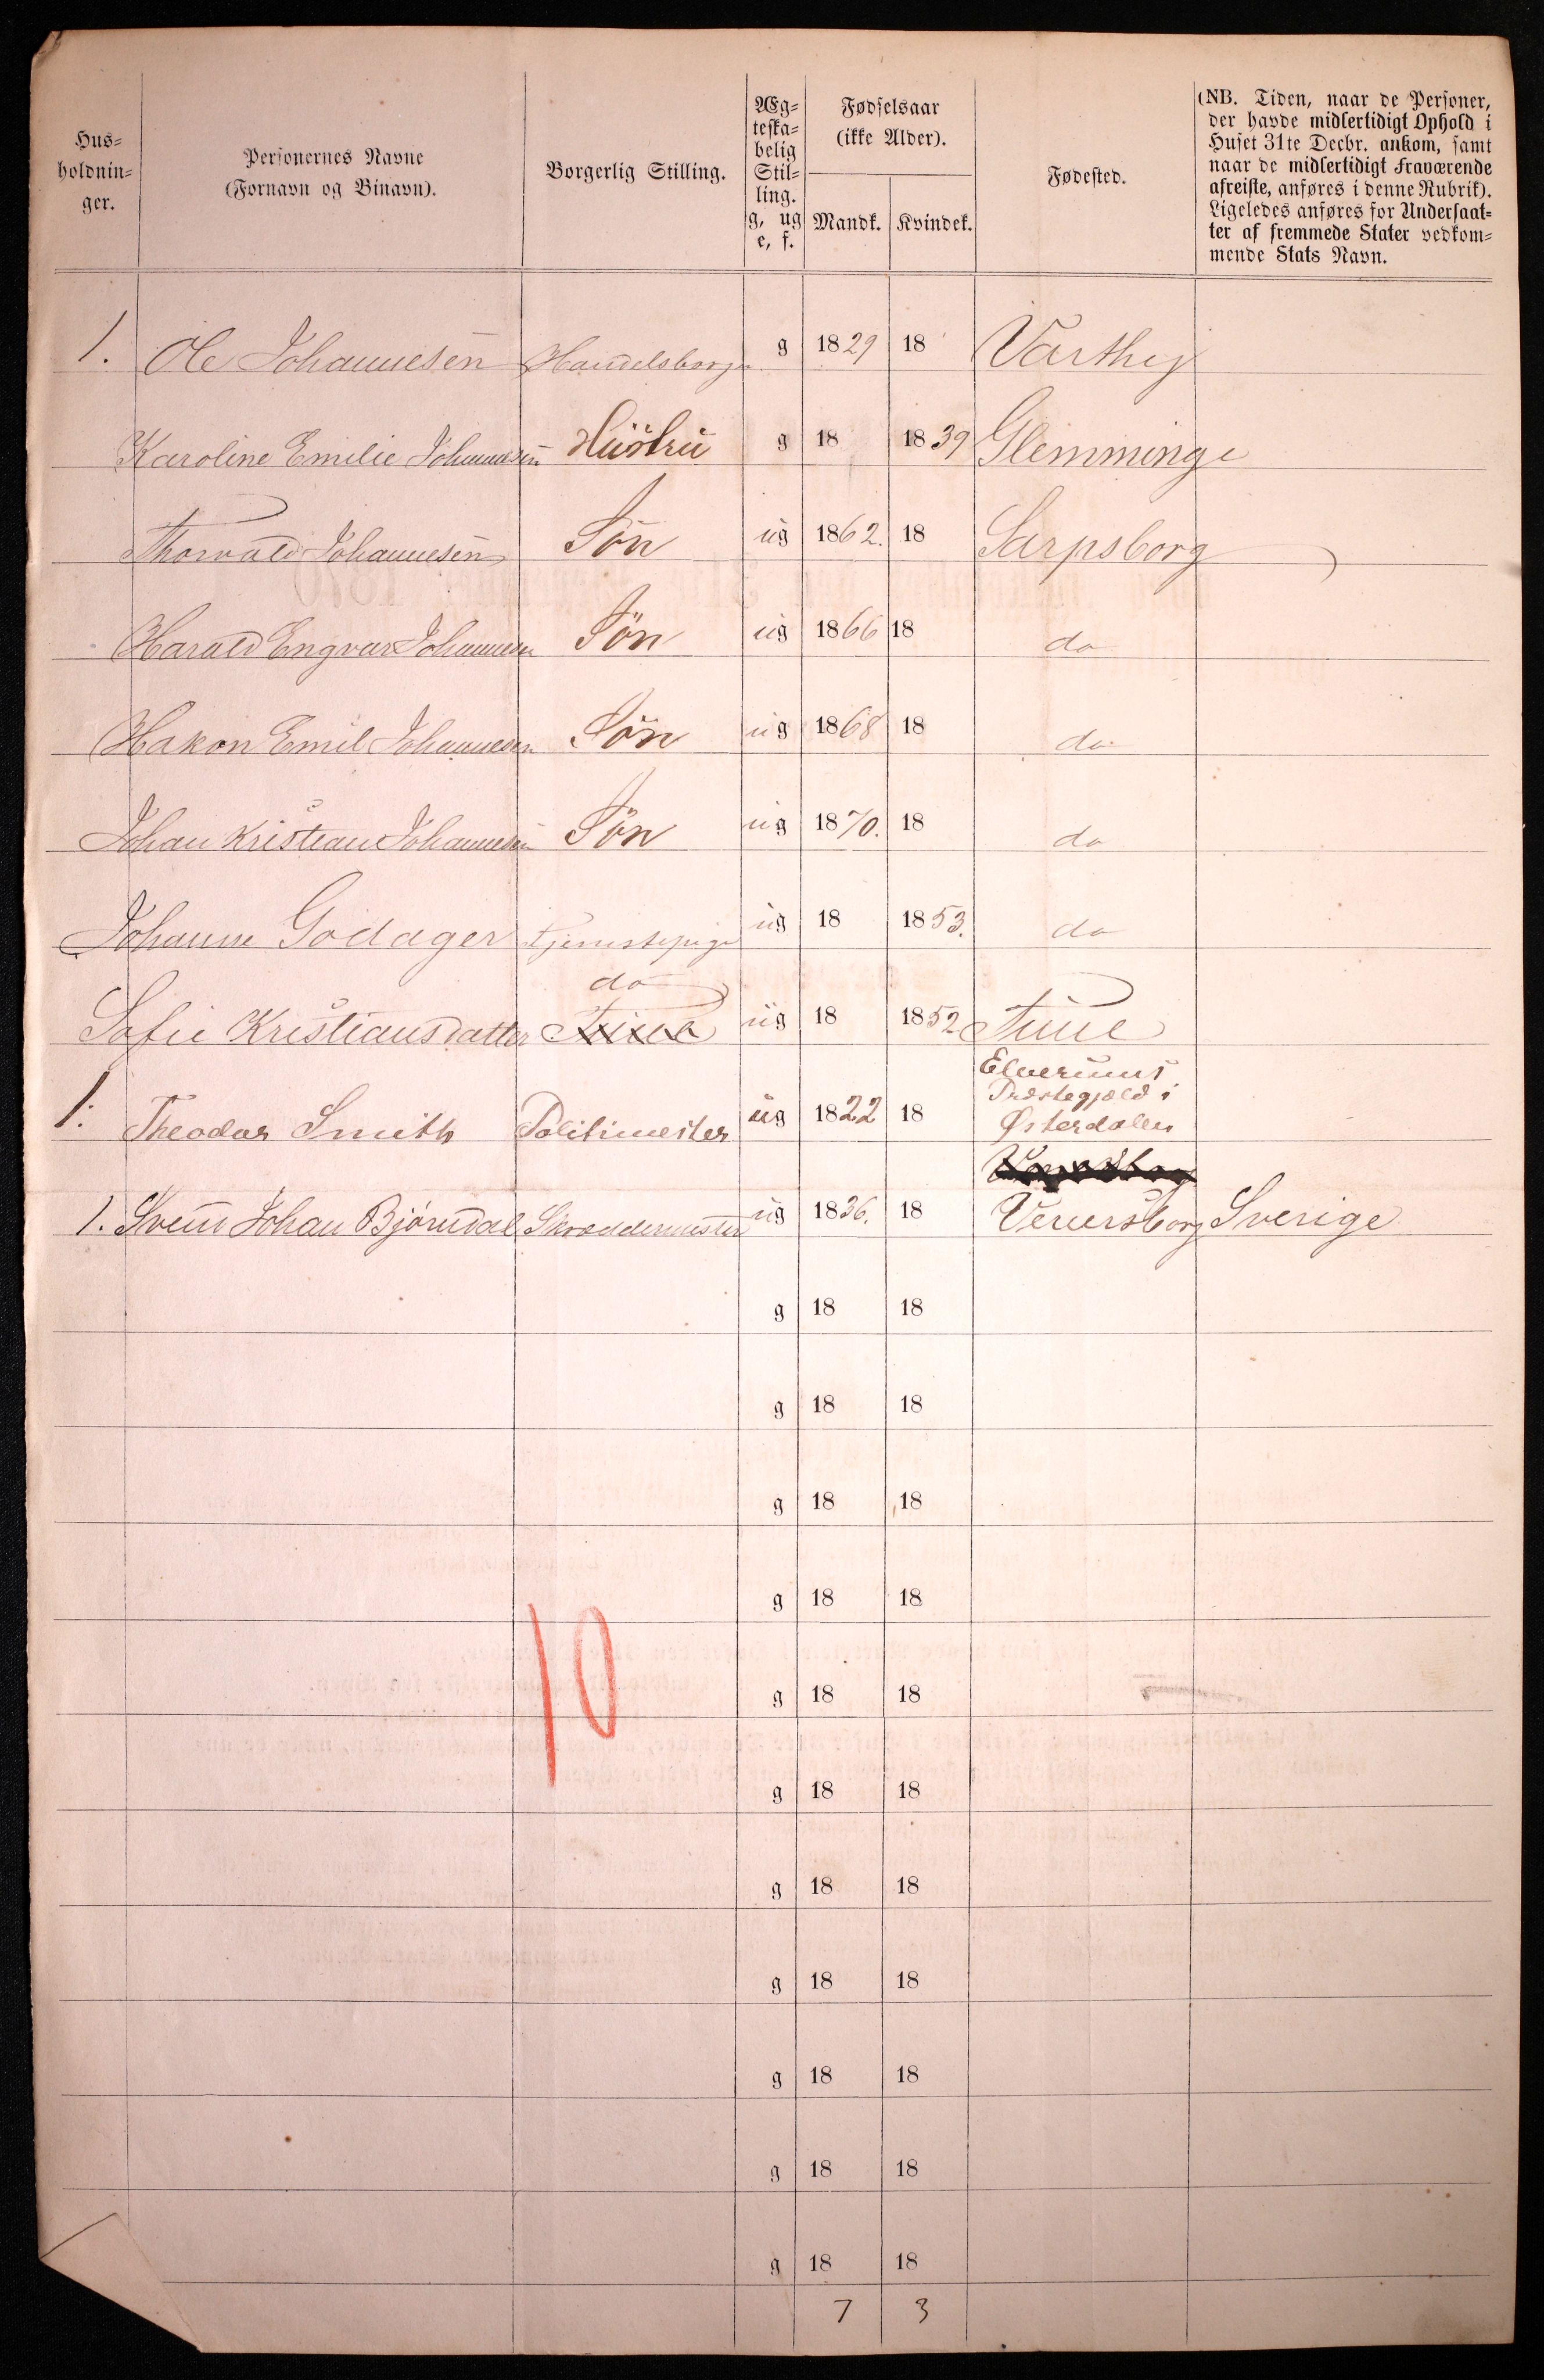 Hus=
holdnin=
ger.
Personernes Navne
(Fornavn og Binavn).
Borgerlig Stilling.
Æg=
teska=
belig
Stil=
ling.
g, ug
e, f.
Fødselsaar
(ikke Alder).
Mandk. Kvindek.
Fødested.
(NB. Tiden, naar de Personer,
der havde midlertidigt Ophold i
Huset 31te Decbr. ankom, samt
naar de midlertidigt Fraværende
afreiste, anføres i denne Rubrik).
Ligeledes anføres for Undersaat=
ter af fremmede Stater vedkom=
mende Stats Navn.
1. Ole Johannesen Handelsborger g 1829 18
Karoline Emilie Johannesen Hüstrü g 18 1839 Glemminge
Thorvald Johannesen Sön üg 1862. 18 Sarpsborg
Harald Engvar Johannesen Sön üg 1866 18 do
Hakon Emil Johannesen Sön ug 1868 18 do
Johan Kristian Johannesen Sön ug 1870. 18 do
Johanne Godager tjenstepige üg 18 1853. do
do
Sofie Kristiansdatter Tune üg 18 1852 Tune
Elverums
Præstegjæld i
1: Theodor Smith Politimester üg 1822 18 Østerdalen
1. Svend Johan Björndal Skræddermester üg 1836. 18 Venersborg Sverige
g 18 18
g 18 18
g 18 18
g 18 18
10
g 18 18
g 18 18
g 18 18
g 18 18
g 18 18
g 18 18
g 18 18
7 3